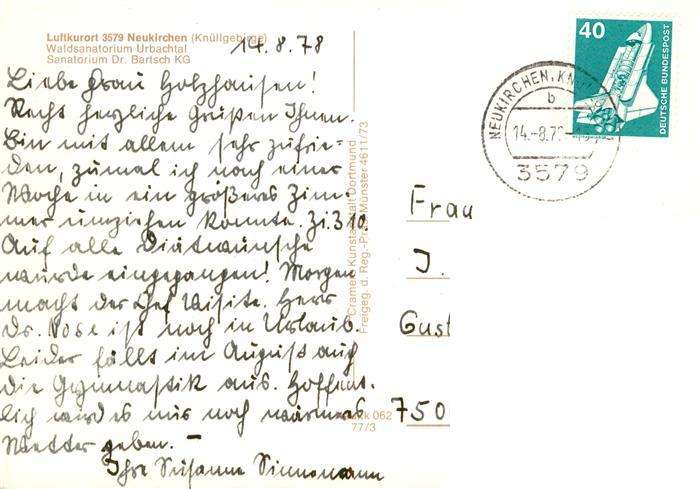 Luftkurort 3579 Neukirchen (Knüllgebirge)
Waldsanatorium Urbachtal
Sanatorium Dr. Bartsch KG
14.8.78
Liebe Frau Holzhausen!
Recht herzliche Grüße Ihnen.
Bin mit allem sehr zufrie-
den, zumal ich nach einer
Woche in ein größeres Zim-
mer umziehen konnte. Zi. 310.
Auf alle Diätwünsche
wurde eingegangen! Morgen
macht der Chef Visite. Herr
Dr. Nose ist noch in Urlaub.
Leider fällt im August auch
die Gymnastik aus. Hoffent-
lich wird es nur noch wärmeres
Wetter geben. –
Ihre Susanne Sinnemann
Cramers Kunstanstalt Dortmund
Freigeg. d. Reg.-Präs. Münster 4611/73
kk 062
77/3
40
DEUTSCHE BUNDESPOST
NEUKIRCHEN, KN
b
14.-8.78
3579
Frau
J.
Gust
750